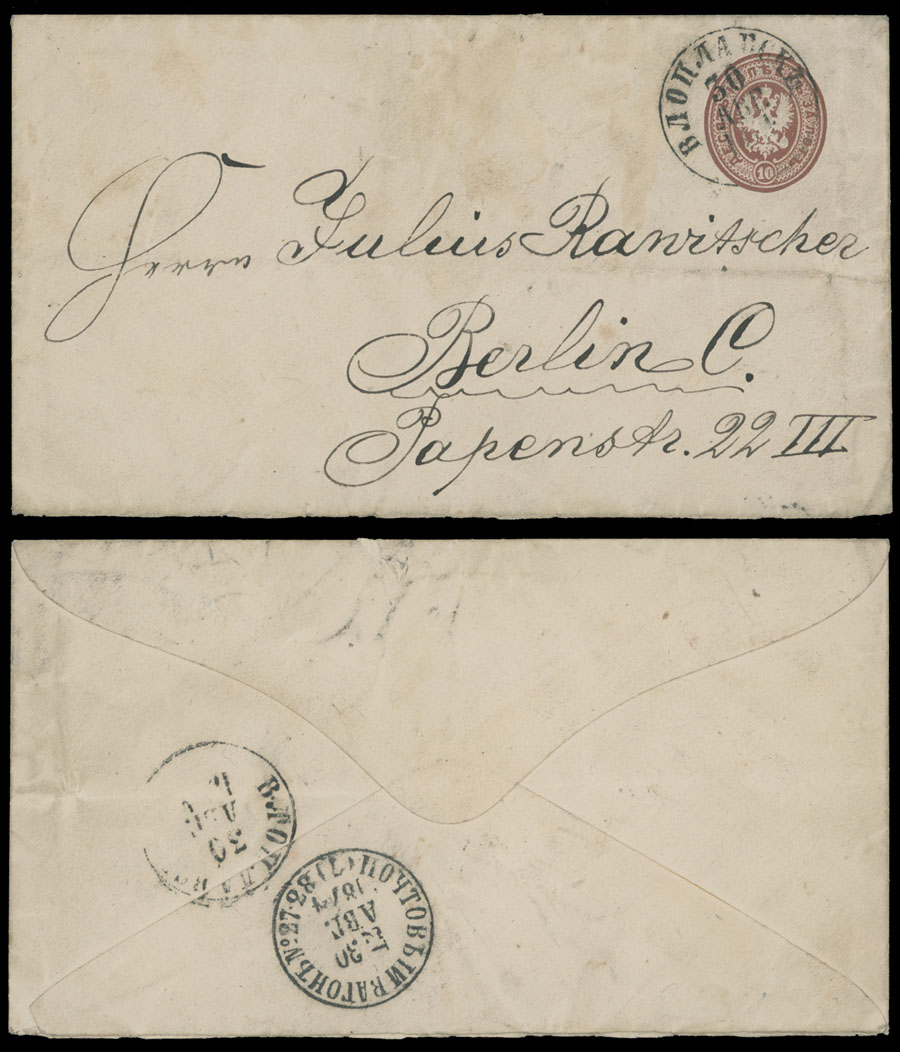 ВЛОЦЛАВСКЪ
30
АВГ
10
Herrn Julius Rawitscher
Berlin C.
Papenstr. 22 III
ВЛОЦЛАВ
30
АВГ
ПОЧТОВЫЙ ВАГОНЪ № 27-28 (2)
30
АВГ.